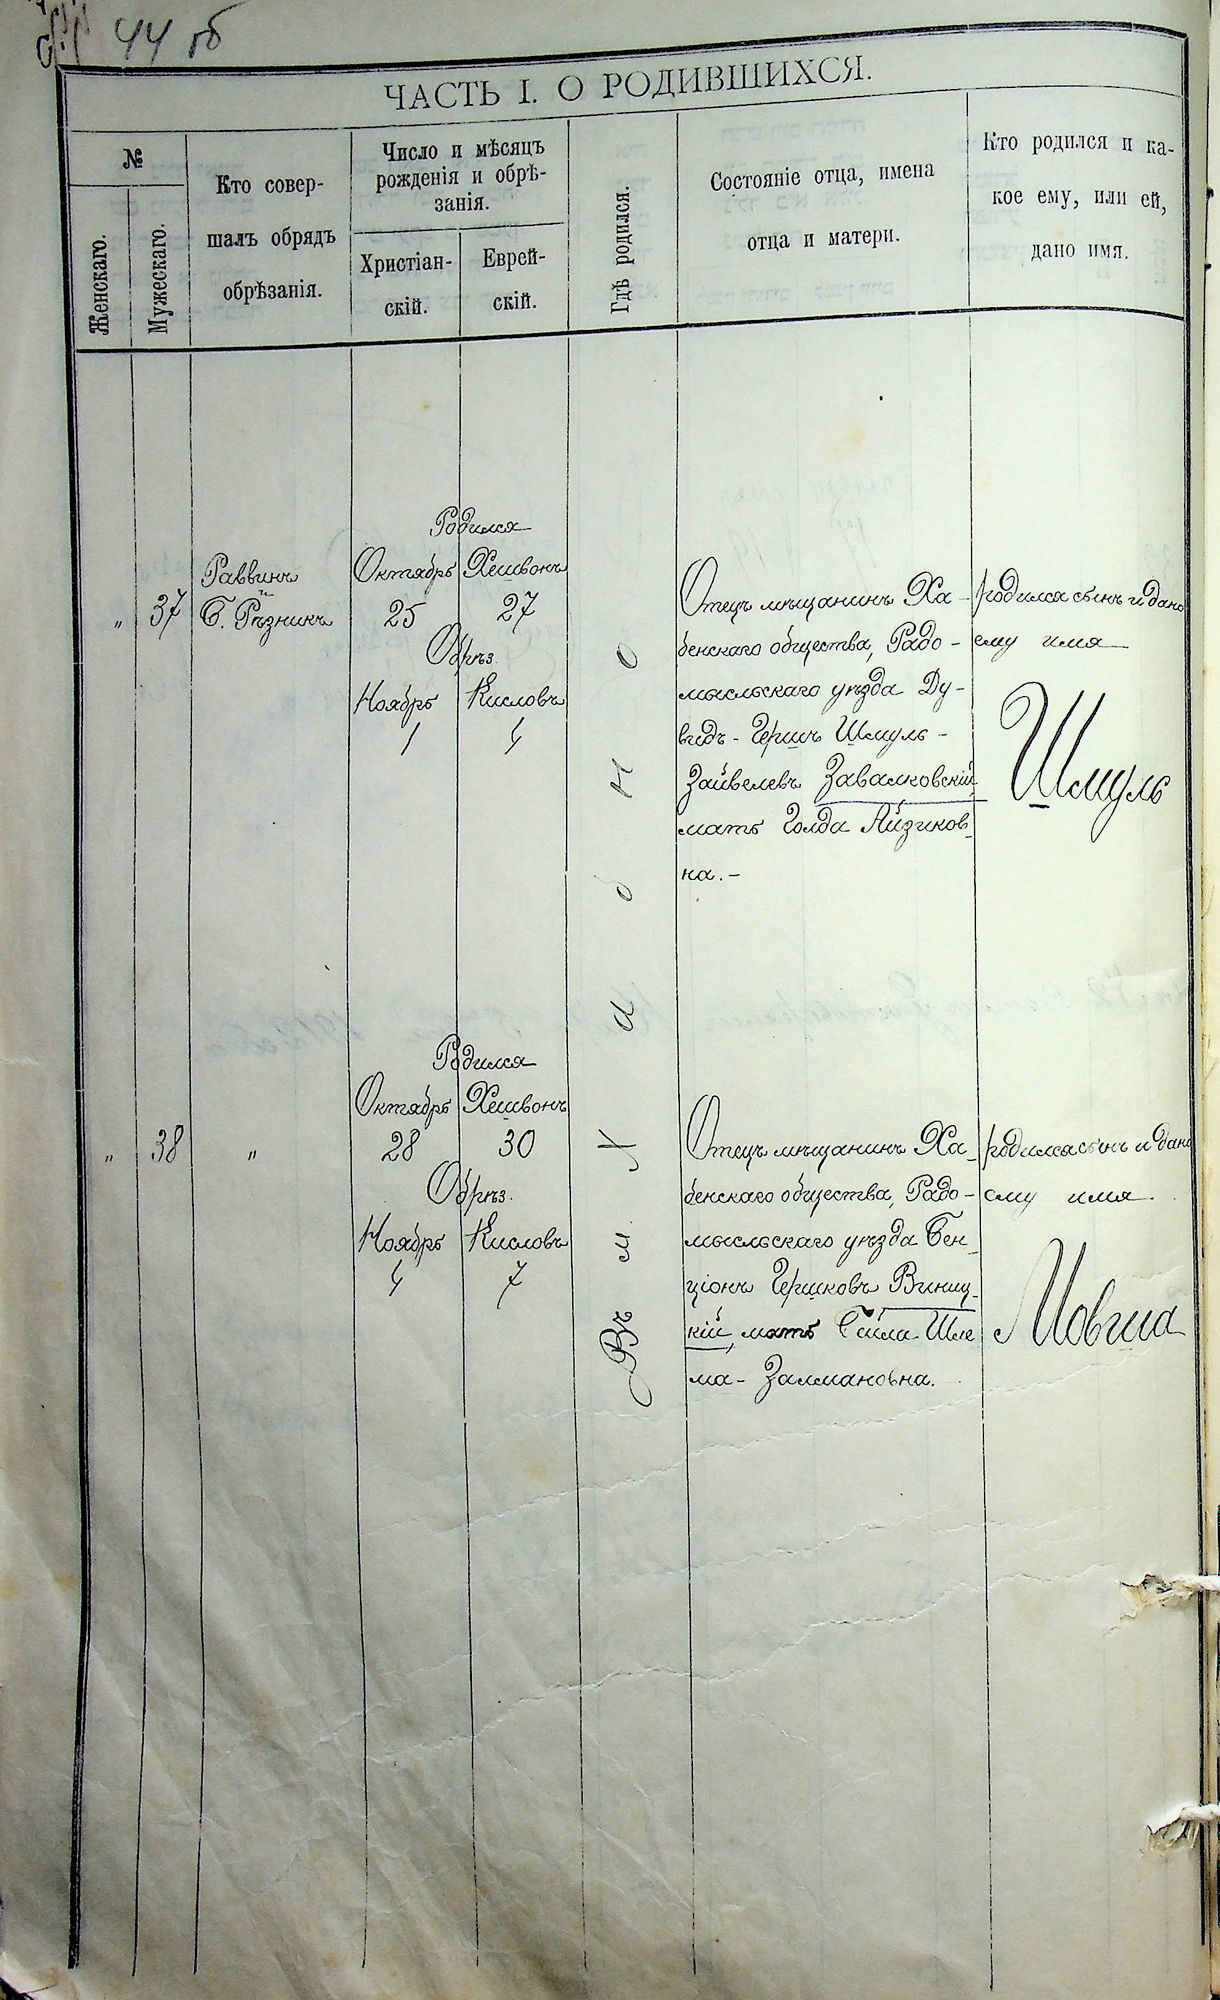 44 об
ЧАСТЬ I. О РОДИВШИХСЯ.
№
Женскаго.
Мужескаго.
Кто совер-
шалъ обрядъ
обрѣзанія.
Число и мѣсяцъ
рожденія и обрѣ-
занія.
Христіан-
скій.
Еврей-
скій.
Гдѣ родился.
Состояніе отца, имена
отца и матери.
Кто родился и ка-
кое ему, или ей,
дано имя.
"
37
Раввинъ
и
Б. Рѣзникъ
Родился
Октябрь Хешвонъ
25 27
Обрѣз.
Ноябрь Кисловъ
1 4
Отецъ мѣщанинъ Ха-
бенскаго общества, Радо-
мысльскаго уѣзда Ду-
видъ-Гершъ Шмуль-
Зайвелевъ Завалковскій,
мать Голда Айзиков-
на.-
родился сынъ и дано
ему имя
Шмуль
Въ м. Хабно
"
38
"
Родился
Октябрь Хешвонъ
28 30
Обрѣз.
Ноябрь Кисловъ
4 7
Отецъ мѣщанинъ Ха-
бенскаго общества, Радо-
мысльскаго уѣзда Бен-
ціонъ Гершковъ Виниц-
кій, мать Бейла Шле
ма-Залмановна.
родился сынъ и дано
ему имя
Мовша